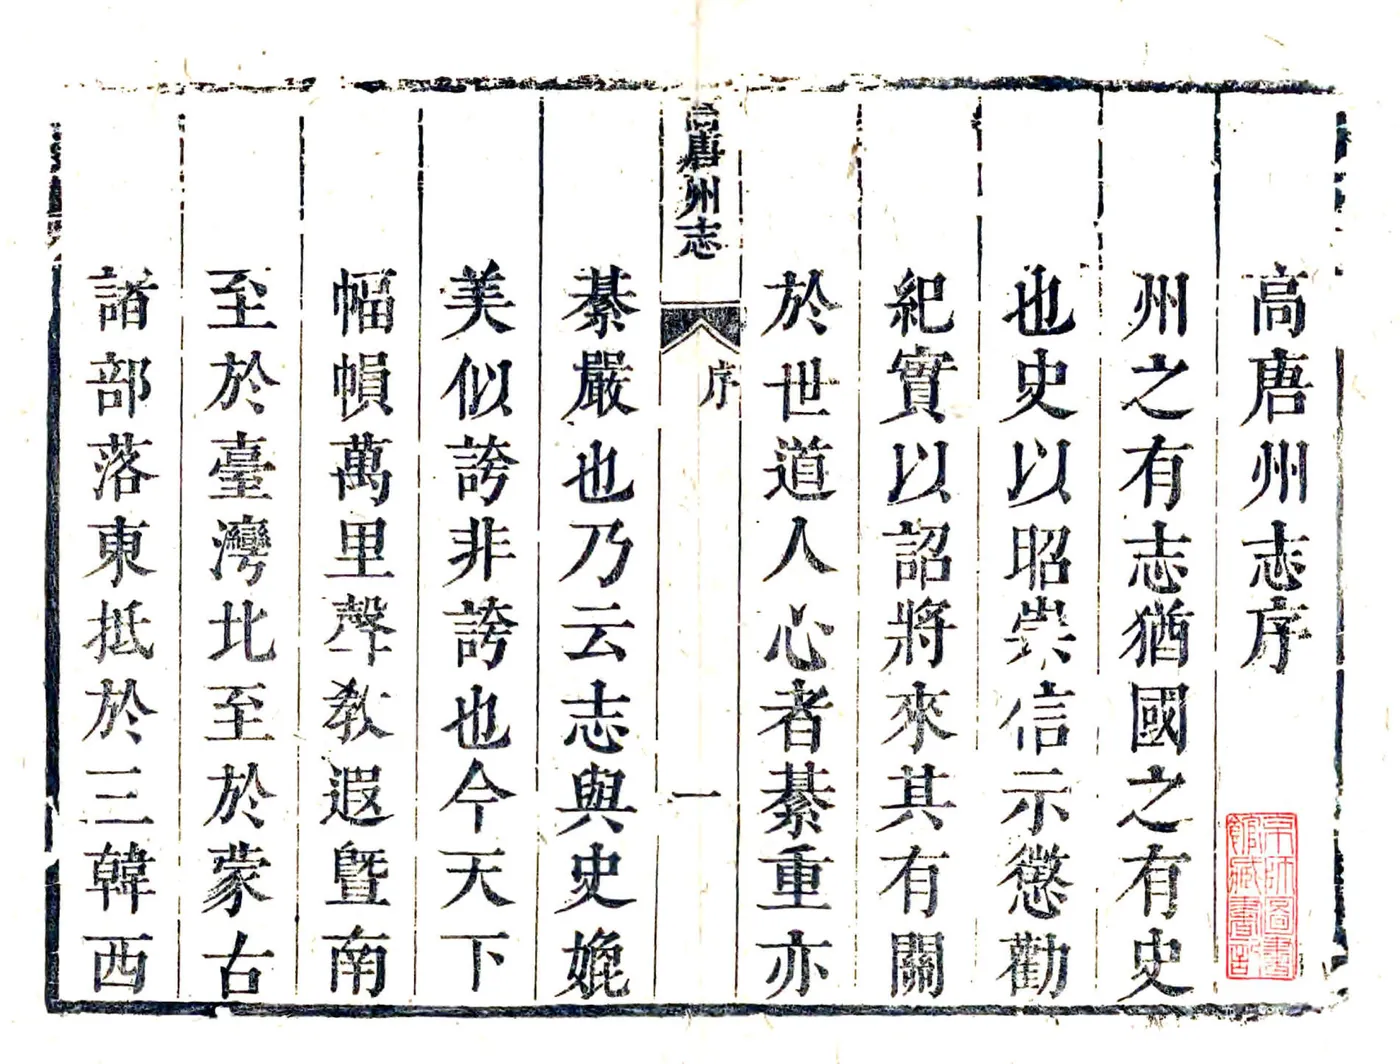 高唐州志序
州之有志猶國之有史
也史以昭崇信示懲勸
紀實以詔將來其有關
於世道人心者綦重亦
高唐州志
序
一
綦嚴也乃云志與史娩
美似誇非誇也今天下
幅幀萬里聲教遐暨南
至於臺灣北至於蒙古
諸部落東抵於三韓西
京師圖書
館藏書記